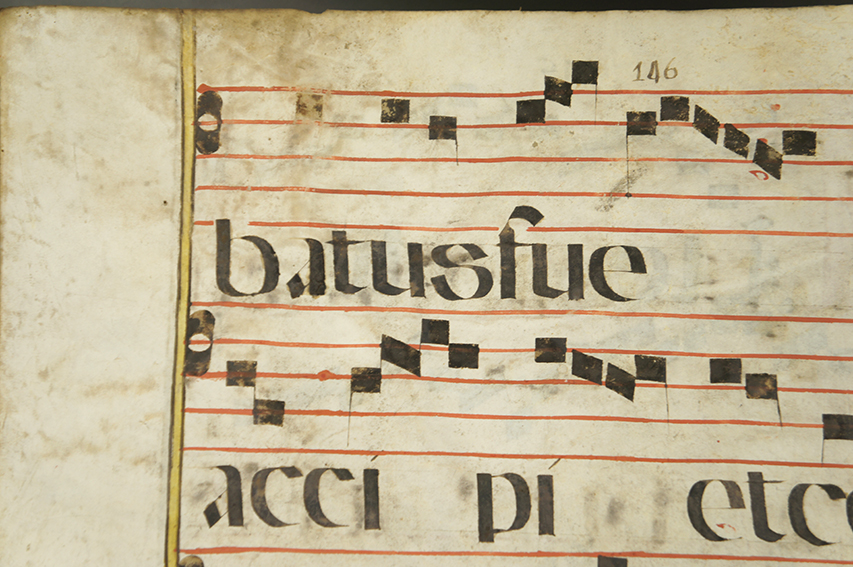 146
batus fue
accí pí et cc